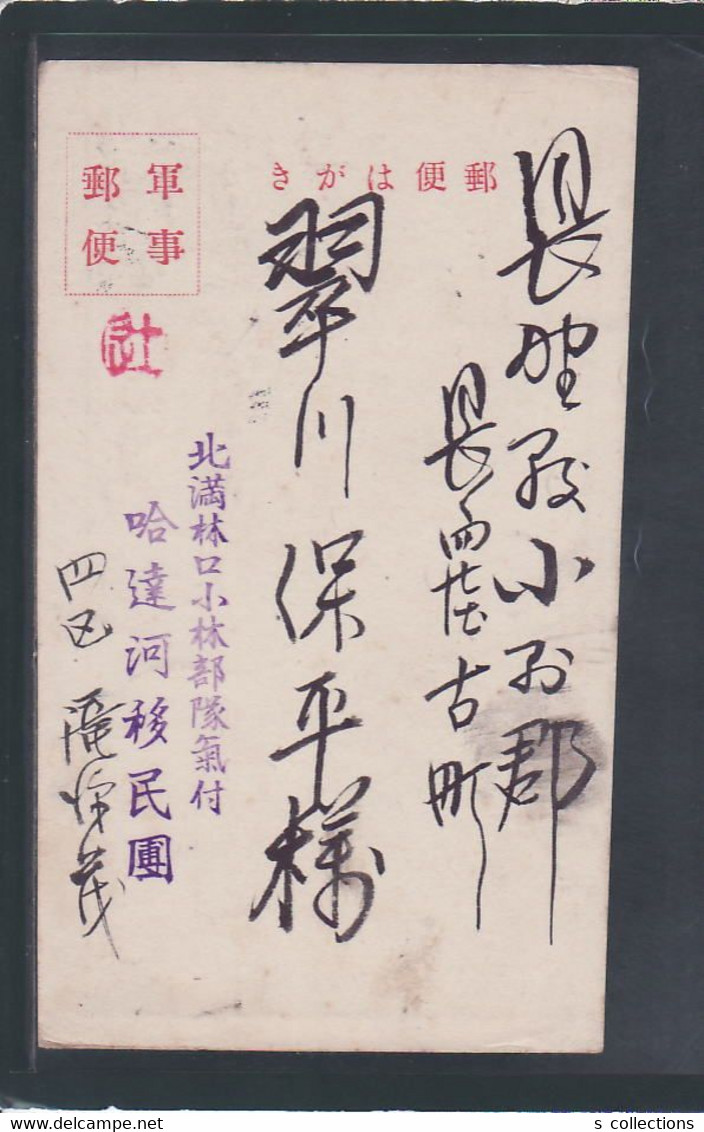 郵便はがき
軍事
郵便
長野縣小縣郡
長
古町
翠川保平様
北満林口小林部隊氣付
哈達河移民團
四区
s collections